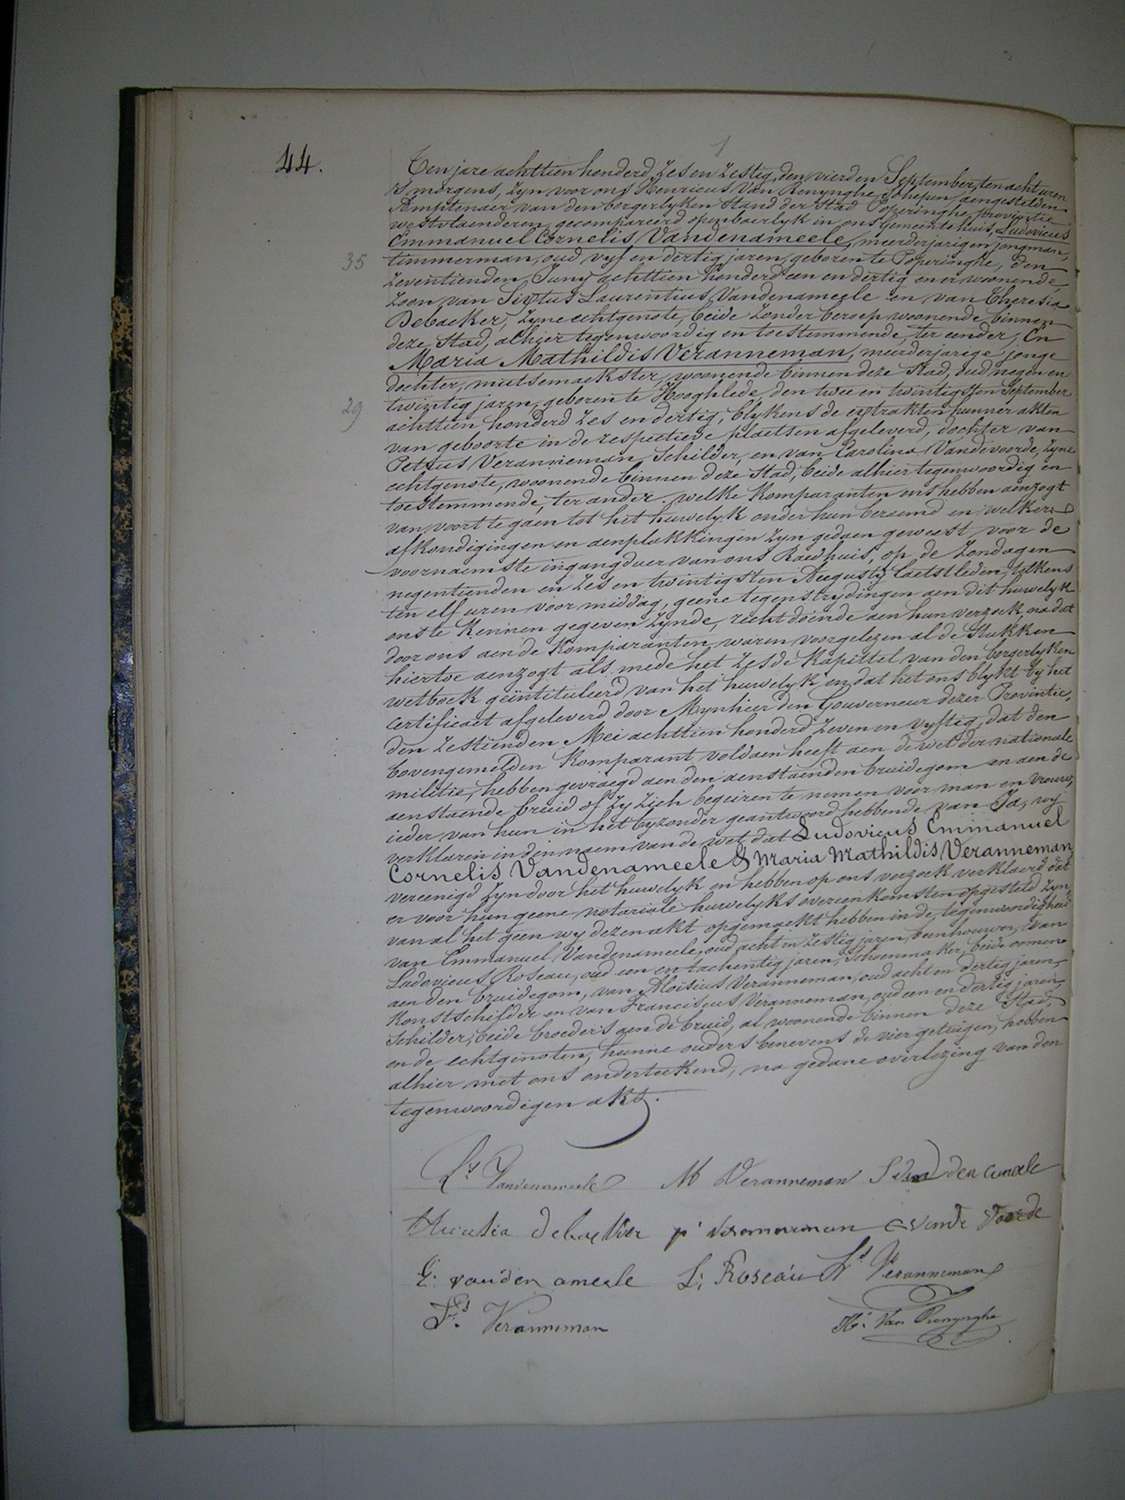 44.
Ten jare achttien honderd zes en zestig, den vierden September, ten acht uren
's morgens, zyn voor ons Henricus Van Renynghe, schepen aengestelden
Amptenaer van den borgerlyken stand der Stad Poperinghe, Provintie
westvlaenderen, gecompareerd openbaerlyk in ons Gemeentehuis, Ludovicus
Emmanuel Cornelis Vandenameele, meerderjarigen jongman,
35
timmerman, oud vyf en dertig jaren, geboren te Poperinghe, den
zeventienden Juny achttien honderd een en dertig en er woonende,
zoon van Sixtus Laurentius Vandenameele en van Theresia
Debacker, zyne echtgenote, beide zonder beroep, woonende binnen
deze Stad, alhier tegenwoordig en toestemmende, ter eender; En
Maria Mathildis Veranneman, meerderjarige jonge
dochter, mutsemaekster, woonende binnen deze Stad, oud negen en
29
twintig jaren, geboren te Hooghlede, den twee en twintigsten September
achttien honderd zes en dertig, blykens de extrakten hunner akten
van geboorte in de respectieve plaetsen afgeleverd, dochter van
Petrus Veranneman, Schilder, en van Carolina Vandevoorde, zyne
echtgenote, woonende binnen deze Stad, beide alhier tegenwoordig en
toestemmende, ter ander. welke Komparanten ons hebben aenzogt
van voort te gaen tot het huwelyk onder hun beraemd en welkers
afkondigingen en aenplakkingen zyn gedaen geweest voor de
voornaemste ingangdeur van ons Raedhuis, op de Zondagen
negentienden en zes en twintigsten Augusty laetstleden, telkens
ten elf uren voormiddag, geene tegenstrydingen aen dit huwelyk
ons te kennen gegeven zynde, rechtdoende aen hun verzoek, nadat
door ons aen de Komparanten waren voorgelezen al de Stukken
hiertoe aenzogt als mede het zesde Kapittel van den borgerlyken
wetboek geïntituleerd van het huwelyk en dat het ons blykt by het
certificaet afgeleverd door Mynheer den Gouverneur dezer Provintie,
den zestienden Mei achttien honderd zeven en vyftig, dat den
bovengemelden Komparant voldaen heeft aen de wet der nationale
militie, hebben gevraegd aen den aenstaenden bruidegom en aen de
aenstaende bruid of zy zich begeiren te nemen voor man en vrouw,
ieder van hun in het byzonder geantwoord hebbende van Ja, wy
verklaren in den naem van de wet dat Ludovicus Emmanuel
Cornelis Vandenameele & Maria Mathildis Veranneman
vereenigd zyn door het huwelyk en hebben op ons verzoek verklaerd dat
er voor hun geene notariale huwelyks overeenkomsten opgesteld zyn,
van al het geen wy dezen akt opgemaekt hebben in de tegenwoordigheid
van Emmanuel Vandenameele, oud acht en zestig jaren, beenhouwer, van
Ludovicus Roseau, oud een en tachentig jaren, Schoenmaker, beide oomen
aen den bruidegom, van Aloisius Veranneman, oud acht en dertig jaren,
Konstschilder en van Franciscus Veranneman, oud een en dertig jaren,
Schilder, beide broeders aen de bruid, al woonende binnen deze Stad,
en de echtgenoten, hunne ouders benevens de vier getuigen, hebben
alhier met ons onderteekend, na gedane overlezing van den
tegenwoordigen akt.
Ls Vandenameele M Veranneman S vandenameele
theresia debacker p veranneman C vande voorde
E. vanden ameele L. Roseau Ls Veranneman
Fs Veranneman Hi Van Renynghe